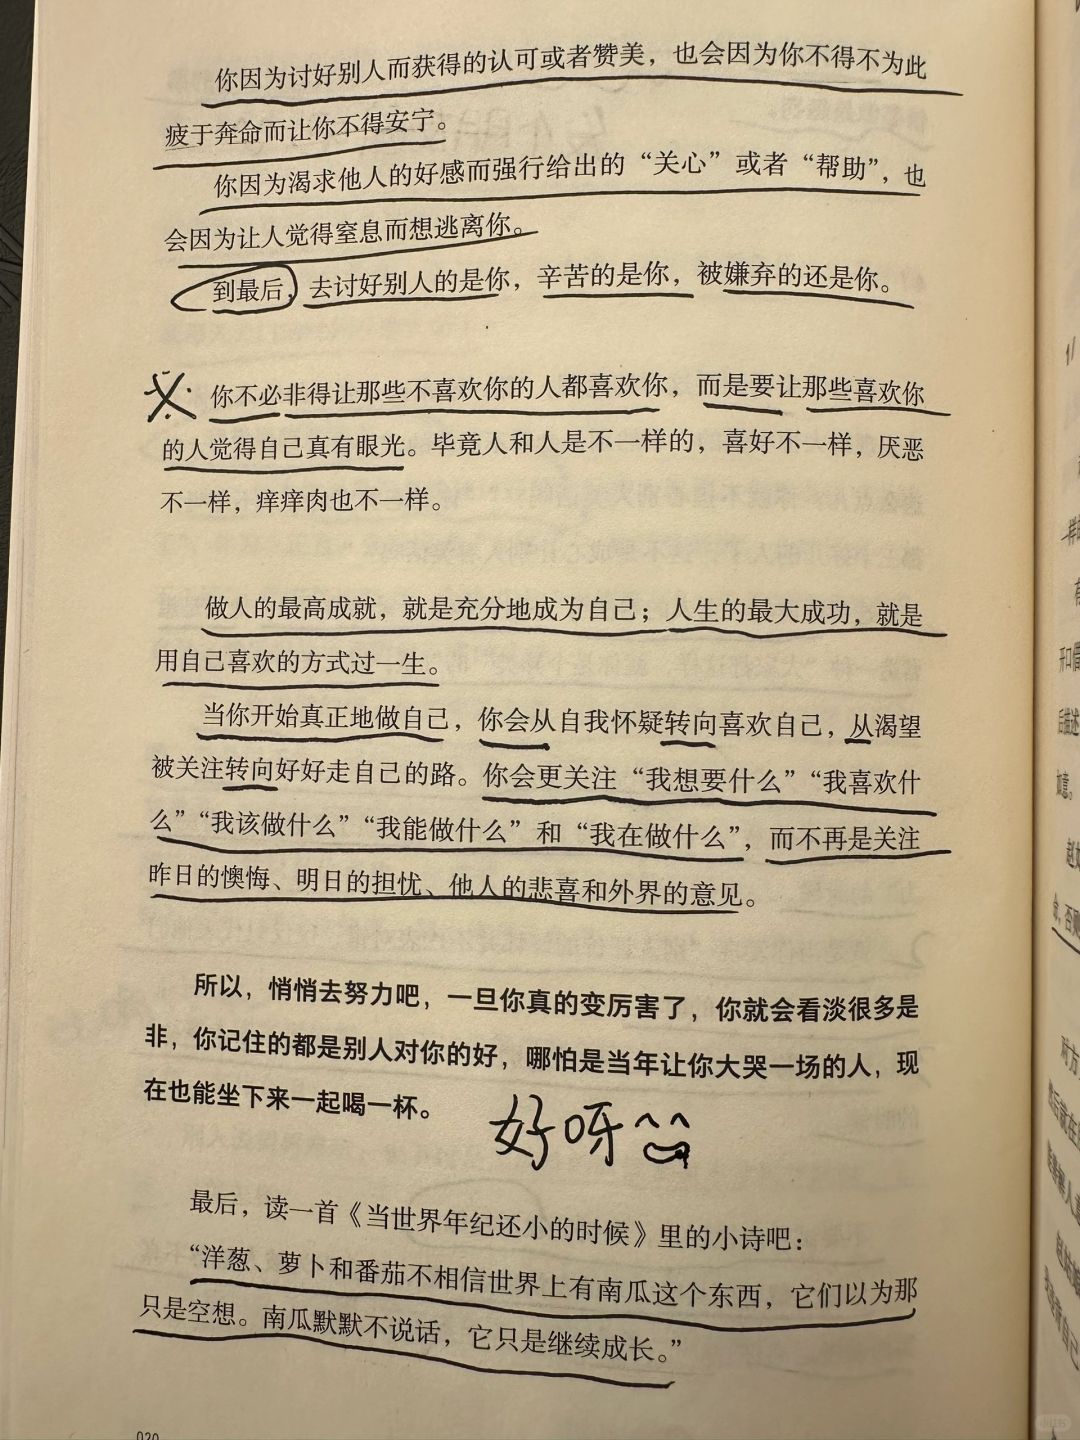 你因为讨好别人而获得的认可或者赞美，也会因为你不得不为此
疲于奔命而让你不得安宁。
你因为渴求他人的好感而强行给出的“关心”或者“帮助”，也
会因为让人觉得窒息而想逃离你。
到最后，去讨好别人的是你，辛苦的是你，被嫌弃的还是你。
你不必非得让那些不喜欢你的人都喜欢你，而是要让那些喜欢你
的人觉得自己真有眼光。毕竟人和人是不一样的，喜好不一样，厌恶
不一样，痒痒肉也不一样。
做人的最高成就，就是充分地成为自己；人生的最大成功，就是
用自己喜欢的方式过一生。
当你开始真正地做自己，你会从自我怀疑转向喜欢自己，从渴望
被关注转向好好走自己的路。你会更关注“我想要什么”“我喜欢什
么”“我该做什么”“我能做什么”和“我在做什么”，而不再是关注
昨日的懊悔、明日的担忧、他人的悲喜和外界的意见。
所以，悄悄去努力吧，一旦你真的变厉害了，你就会看淡很多是
非，你记住的都是别人对你的好，哪怕是当年让你大哭一场的人，现
在也能坐下来一起喝一杯。
好呀
最后，读一首《当世界年纪还小的时候》里的小诗吧：
“洋葱、萝卜和番茄不相信世界上有南瓜这个东西，它们以为那
只是空想。南瓜默默不说话，它只是继续成长。”